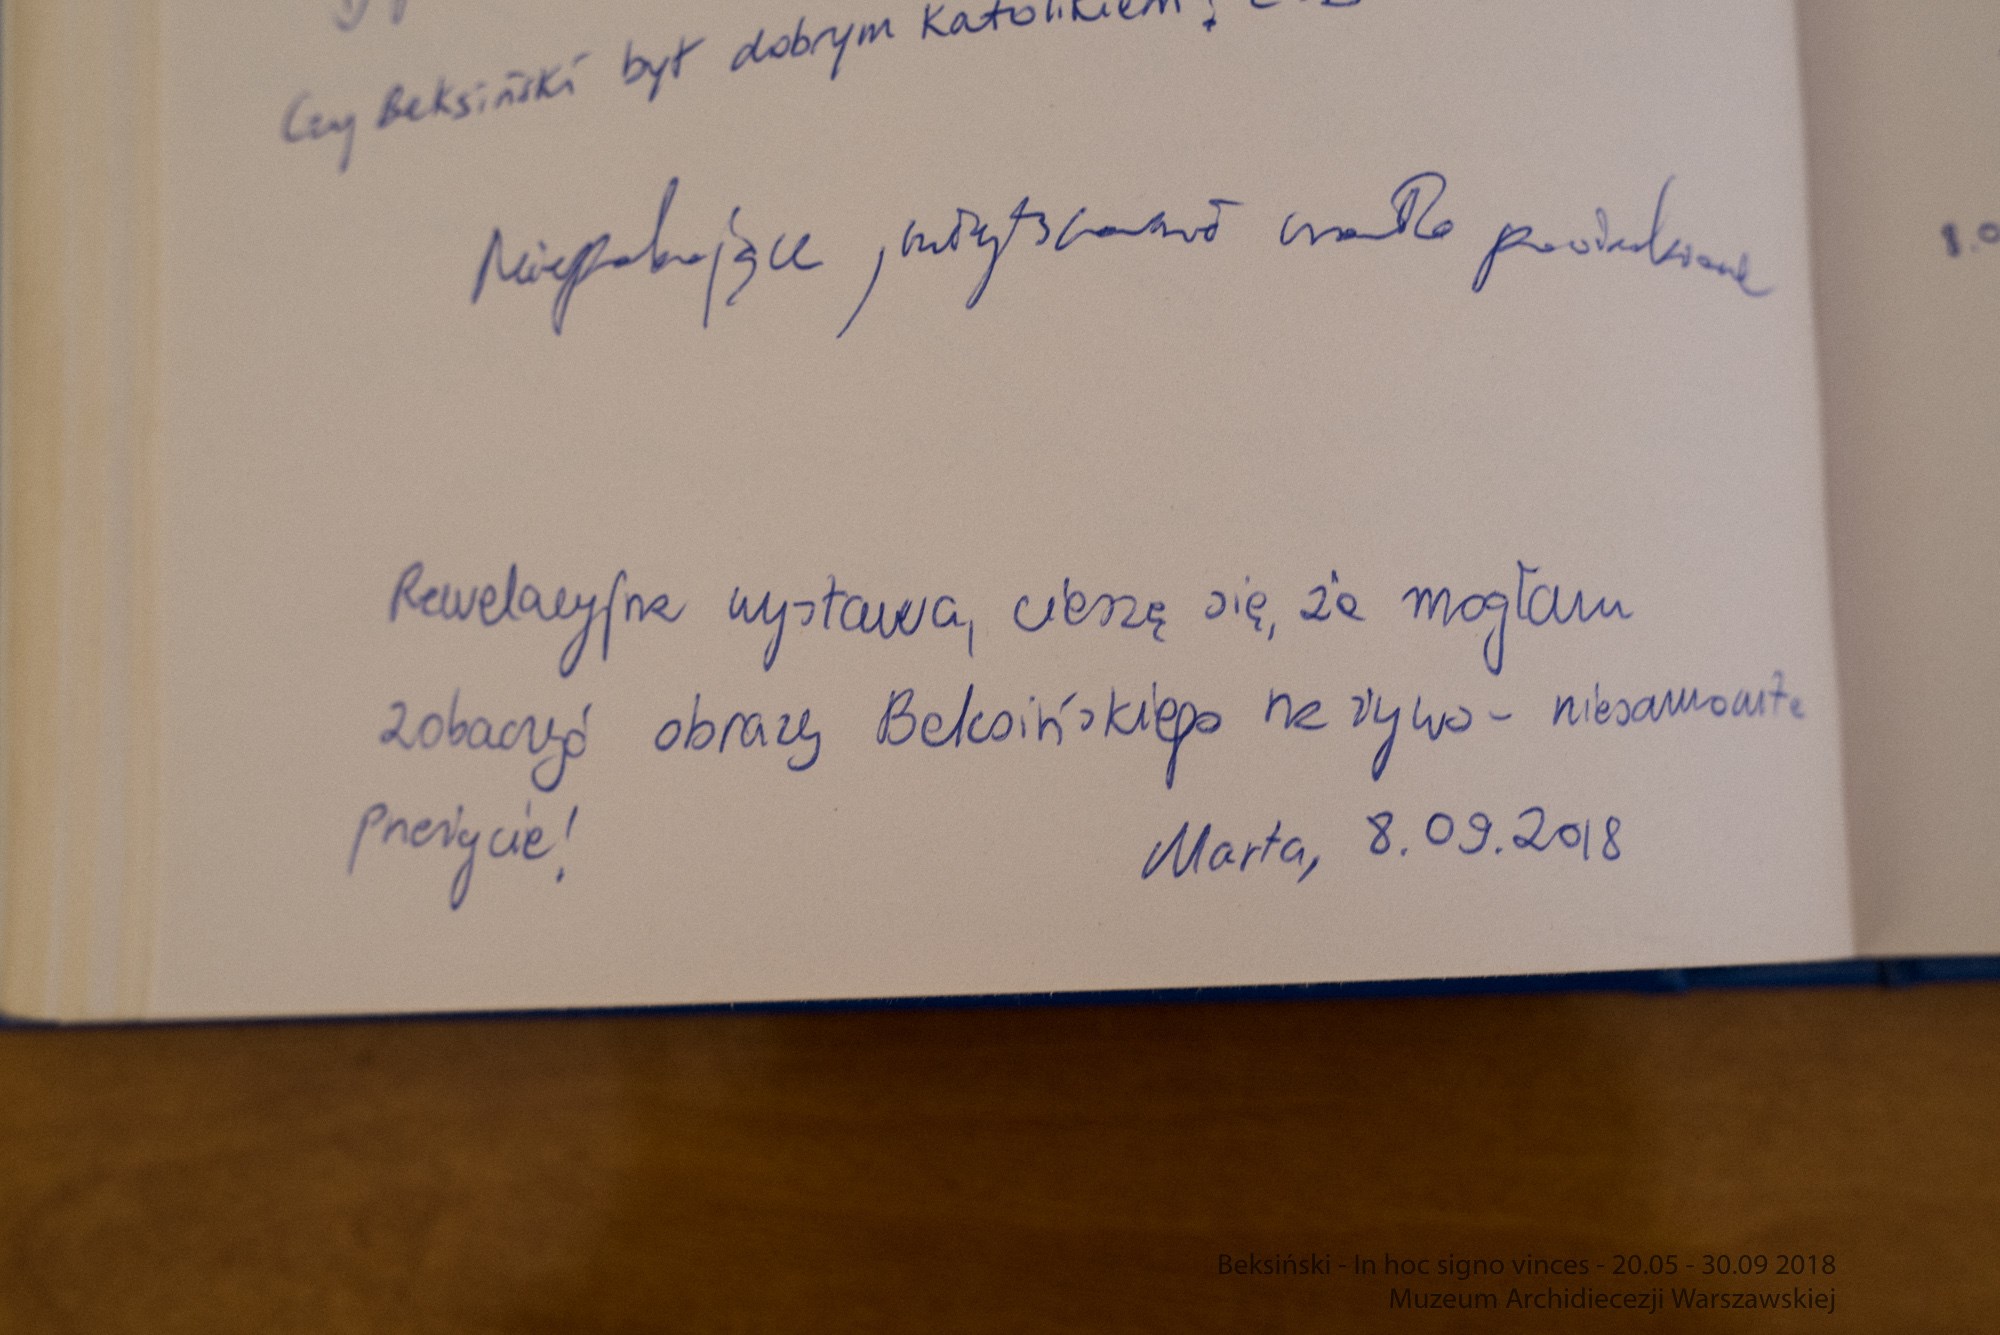 Czy Beksiński był dobrym katolikiem?
Niepokojące,
Rewelacyjna wystawa, cieszę się, że mogłam
zobaczyć obrazy Beksińskiego na żywo - niesamowite
przeżycie!
Marta, 8.09.2018
Beksiński - In hoc signo vinces - 20.05 - 30.09 2018
Muzeum Archidiecezji Warszawskiej